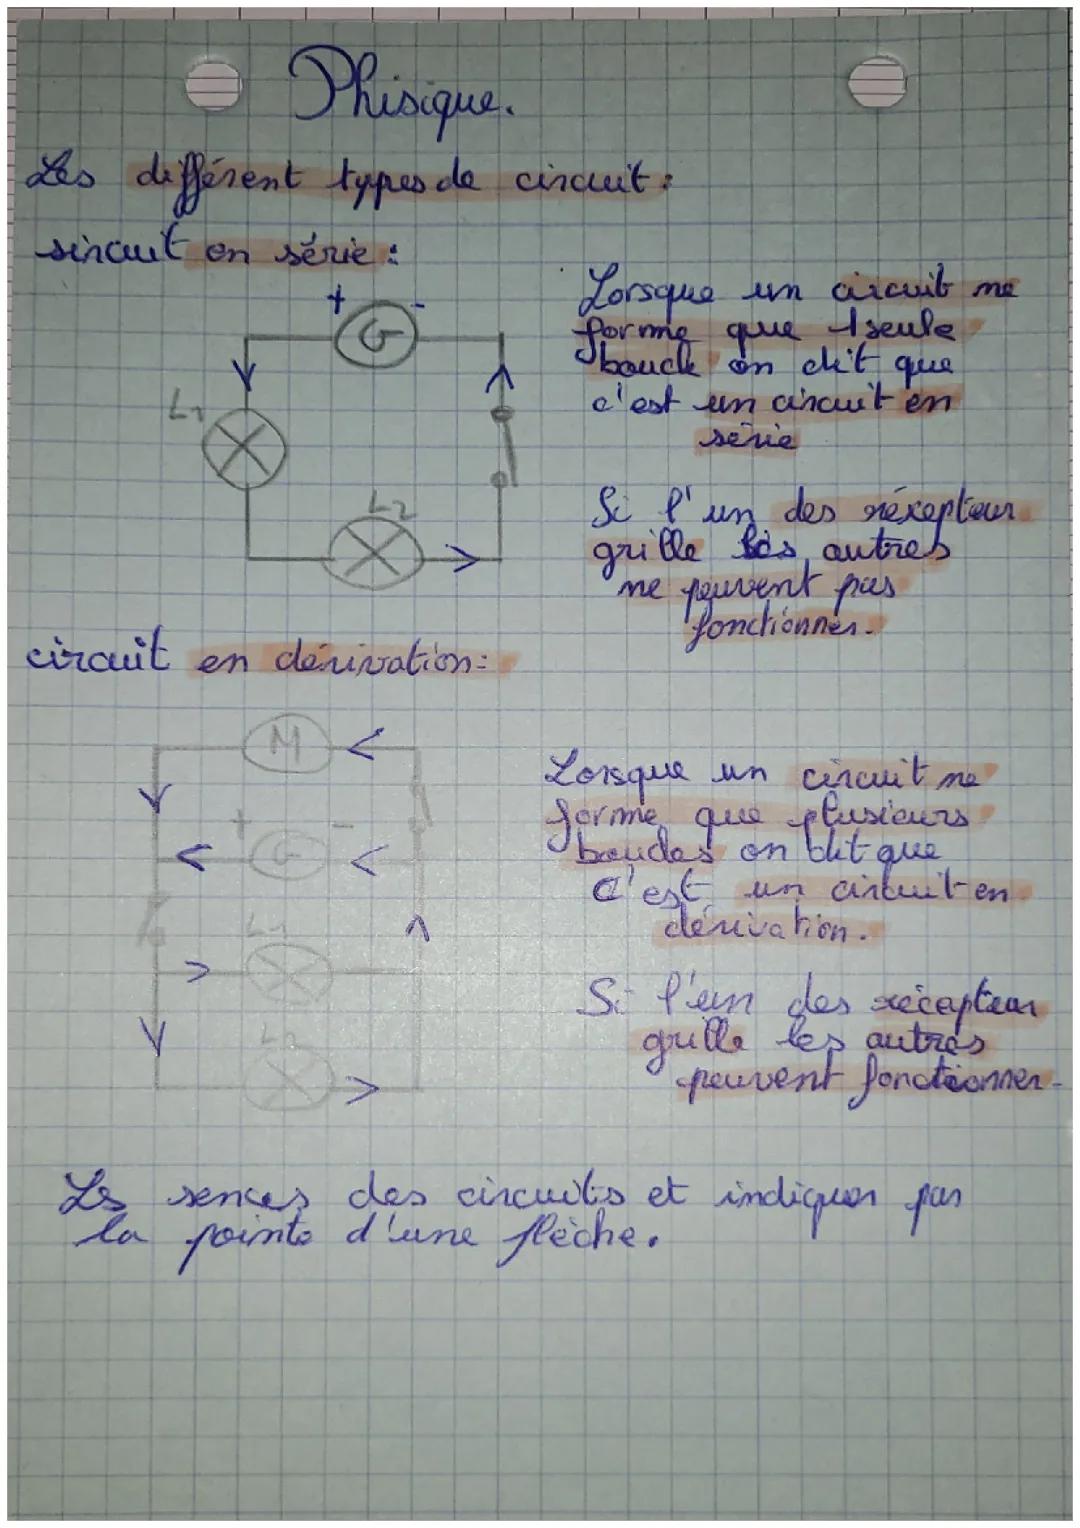 Phisique.
Les différent types de circuit:
sircuit en série:
+ -
G
L1
L2
Lorsque un circuit ne
forme que 1 seule
boucle on dit que
c'est un circuit en
série
Si l'un des récepteur
grille les autres
ne peuvent pas
fonctionner.
circuit en dérivation:
M
+ -
G
L1
L2
Lorsque un circuit ne
forme que plusieurs
boucles on dit que
c'est un circuit en
dérivation.
Si l'un des récepteur
grille les autres
peuvent fonctionner.
Les sences des circuits et indiquer par
la pointe d'une flèche.